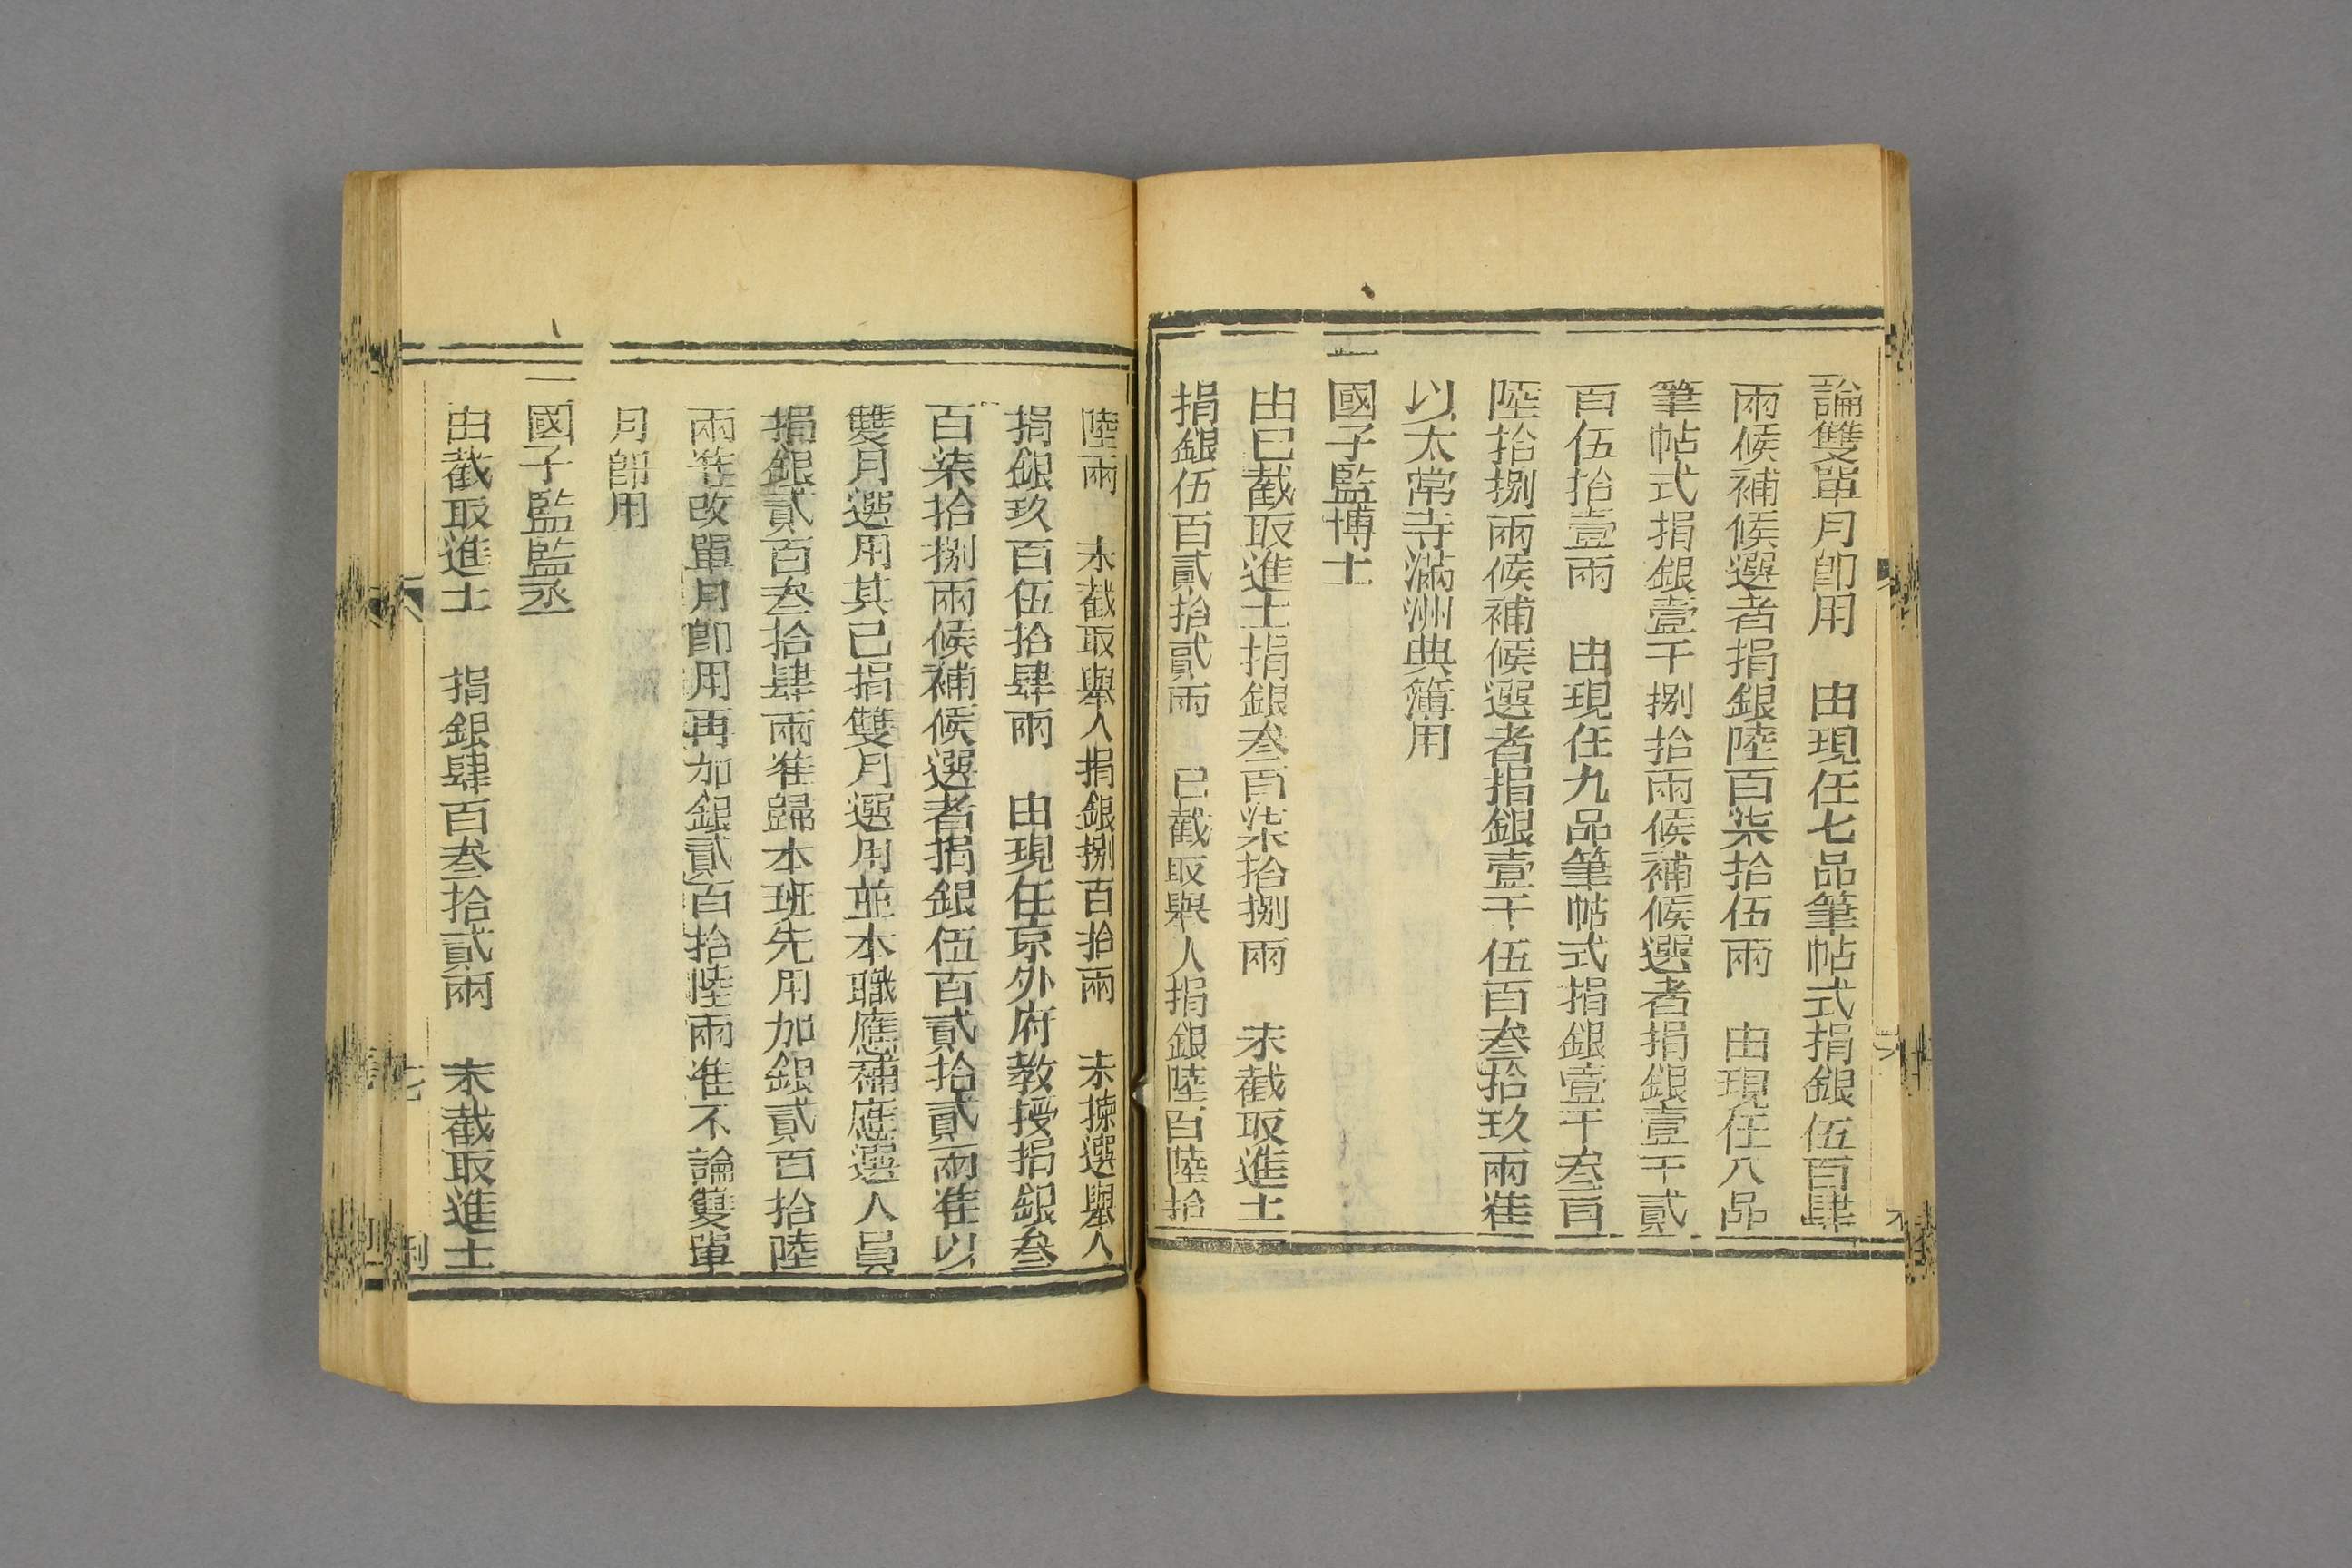 論雙單月卽用　由現任七品筆帖式捐銀伍百肆
兩候補候選者捐銀陸百柒拾伍兩　由現任八品
筆帖式捐銀壹千捌拾兩候補候選者捐銀壹千貳
百伍拾壹兩　由現任九品筆帖式捐銀壹千叁百
陸拾捌兩候補候選者捐銀壹千伍百叁拾玖兩准
以太常寺滿洲典簿用
一國子監博士
由已截取進士捐銀叁百柒拾捌兩　未截取進士
捐銀伍百貳拾貳兩　已截取舉人捐銀陸百陸拾
陸兩　未截取舉人捐銀捌百拾兩　未揀選舉人
捐銀玖百伍拾肆兩　由現任京外府教授捐銀叁
百柒拾捌兩候補候選者捐銀伍百貳拾貳兩准以
雙月選用其已捐雙月選用並本職應補應選人員
捐銀貳百叁拾肆兩准歸本班先用加銀貳百拾陸
兩准改單月卽用再加銀貳百拾陸兩准不論雙單
月卽用
一國子監監丞
由截取進士　捐銀肆百叁拾貳兩　未截取進士